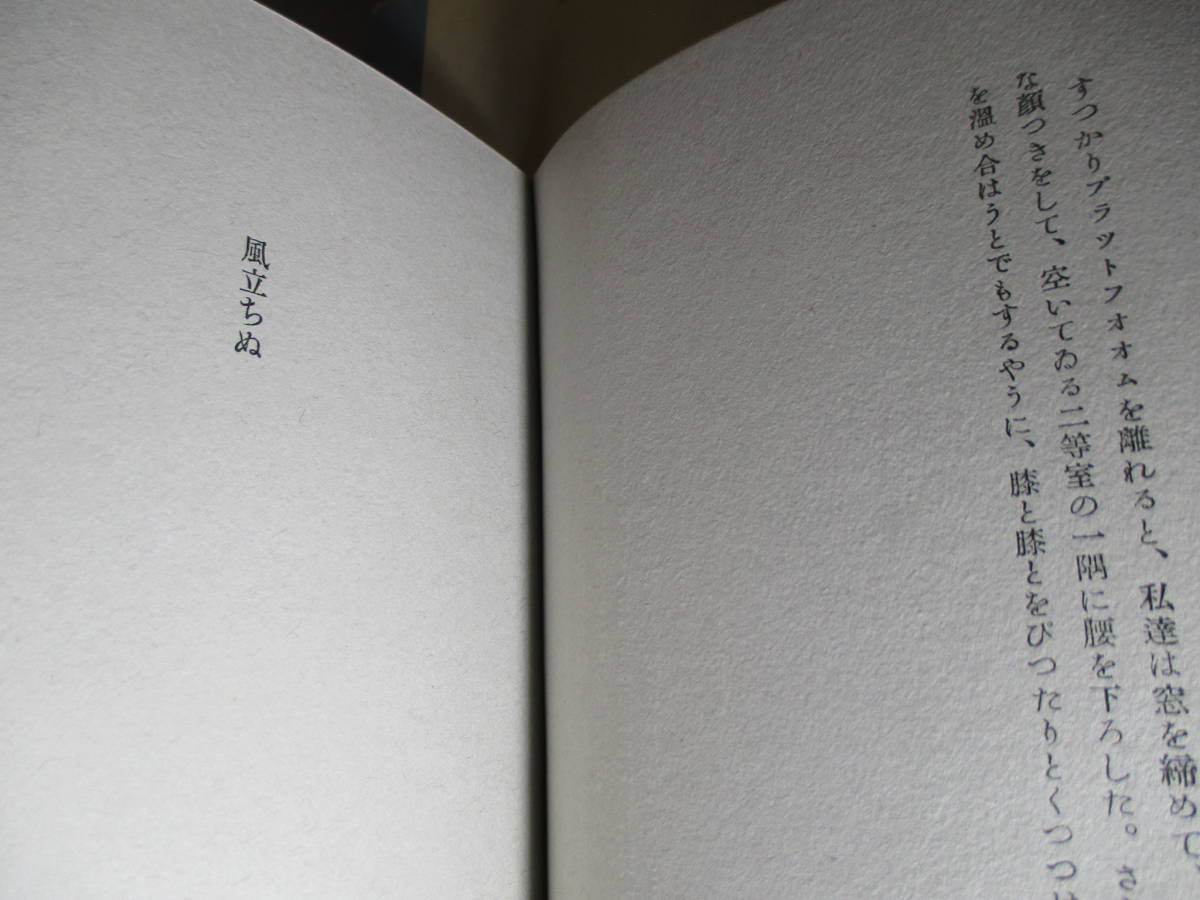 すつかりプラットフオオムを離れると、私達は窓を締めて、
な顔つきをして、空いてゐる二等室の一隅に腰を下ろした。さ
を溫め合はうとでもするやうに、膝と膝とをぴつたりとくつつけ
風立ちぬ